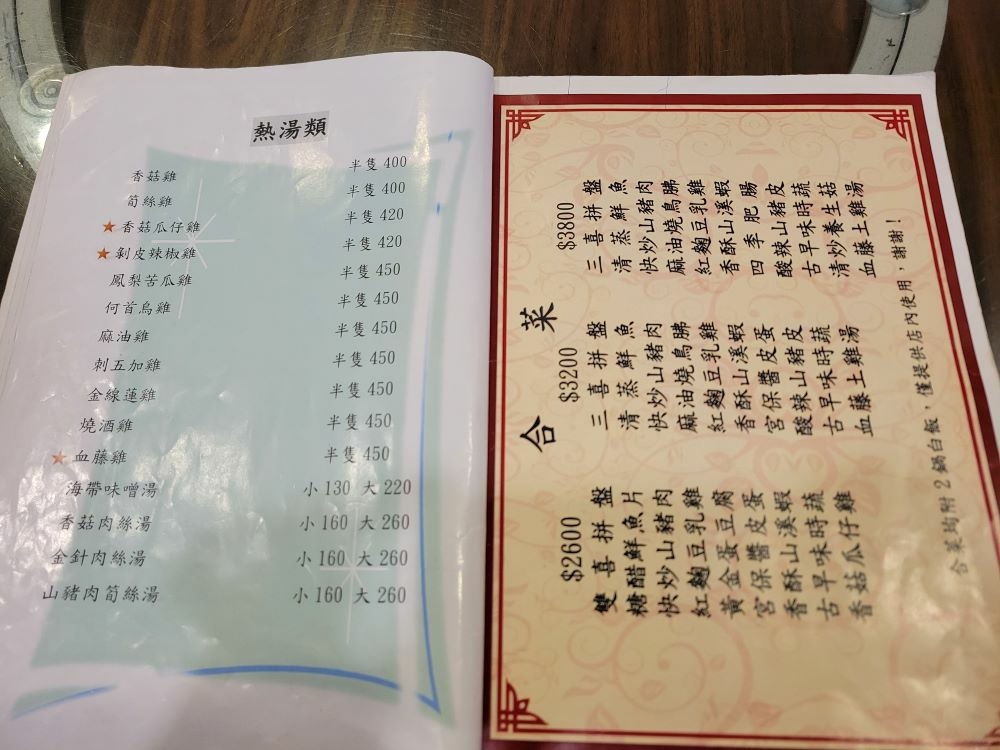 熱湯類
香菇雞 半隻 400
筍絲雞 半隻 400
★香菇瓜仔雞 半隻 420
★剝皮辣椒雞 半隻 420
鳳梨苦瓜雞 半隻 450
何首烏雞 半隻 450
麻油雞 半隻 450
刺五加雞 半隻 450
金線蓮雞 半隻 450
燒酒雞 半隻 450
★血藤雞 半隻 450
海帶味噌湯 小 130 大 220
香菇肉絲湯 小 160 大 260
金針肉絲湯 小 160 大 260
山豬肉筍絲湯 小 160 大 260
合菜
$2600
雙喜拼盤
糖醋鮮魚片
快炒山豬肉
紅麴豆乳雞
黃金蛋豆腐
宮保醬皮蛋
香酥山溪蝦
古早味時蔬
香菇瓜仔雞
$3200
三喜拼盤
清蒸鮮魚
快炒山豬肉
麻油燒鳥腱
紅麴豆乳雞
香酥山溪蝦
宮保醬皮蛋
酸辣山豬皮
古早味時蔬
血藤土雞湯
$3800
三喜拼盤
清蒸鮮魚
快炒山豬肉
麻油燒鳥腱
紅麴豆乳雞
香酥山溪蝦
四季肥腸
酸辣山豬皮
古早味時蔬
清炒養生菇
血藤土雞湯
合菜均附2鍋白飯，僅提供店內使用，謝謝！